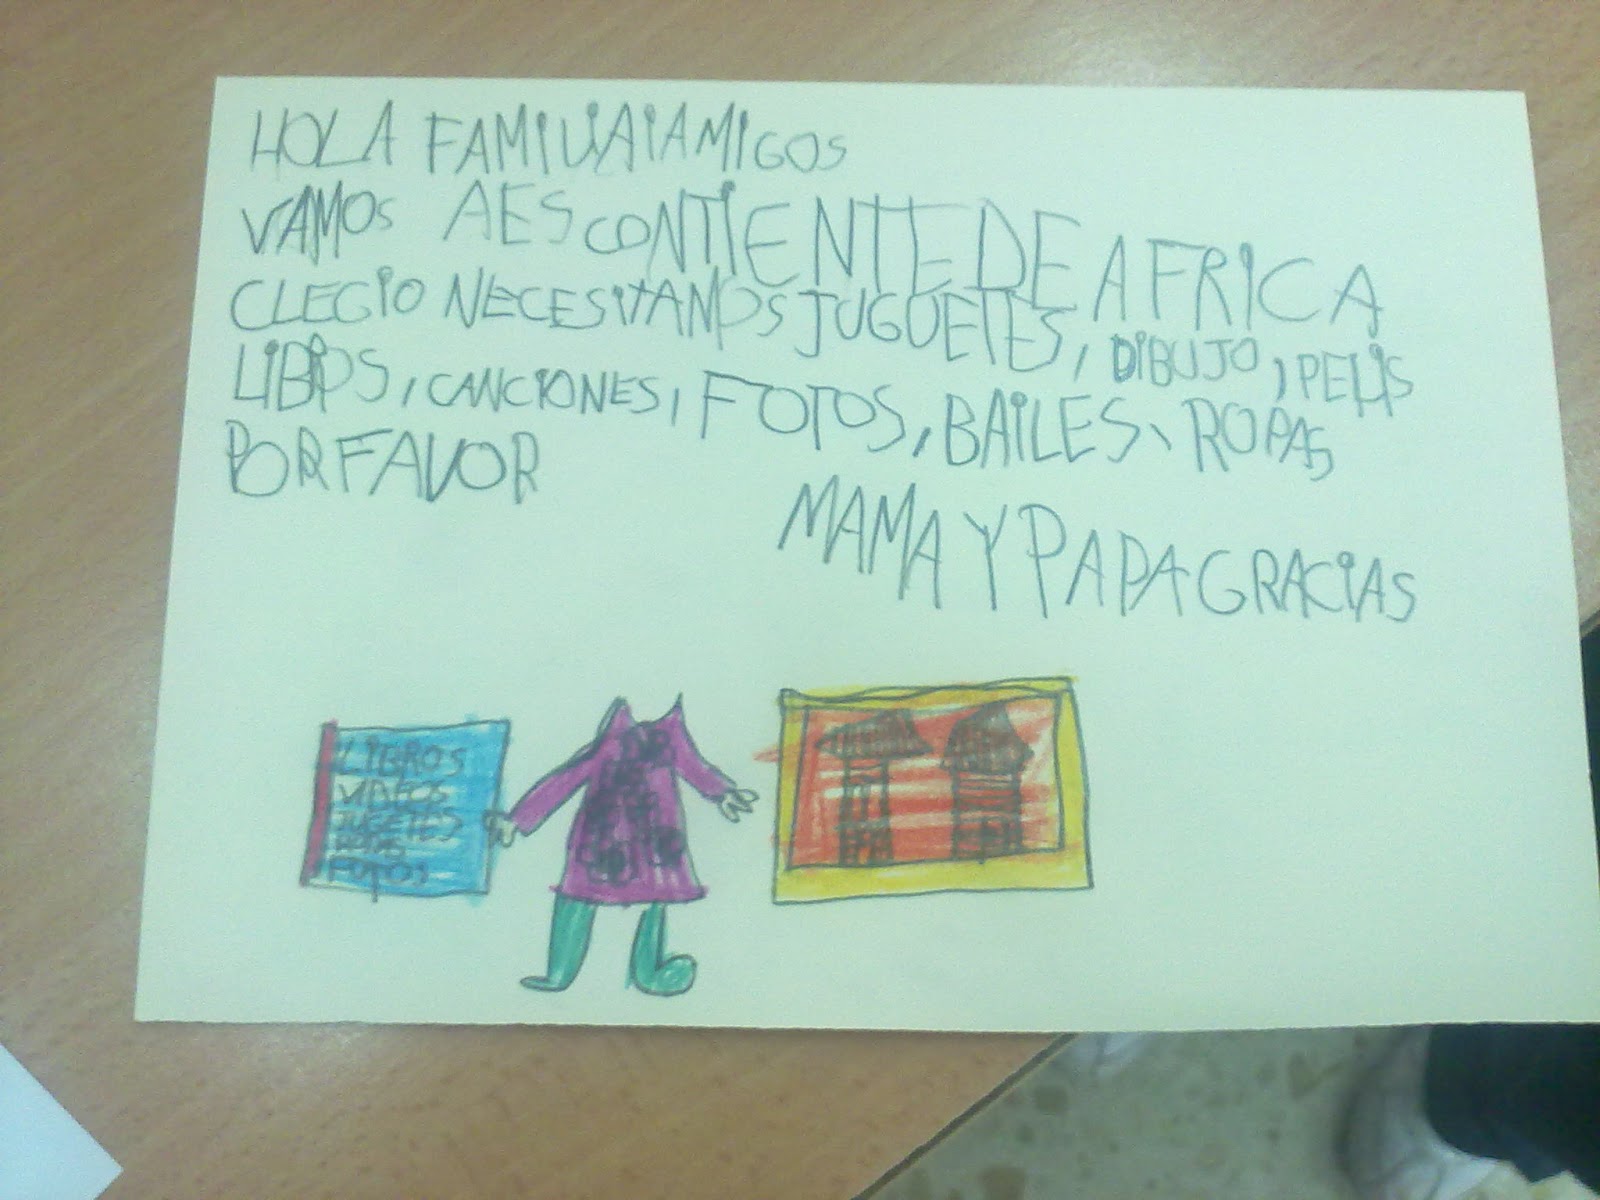 HOLA FAMILIA I AMIGOS
VAMOS A ES CONTIENTE DE AFRICA
CLEGIO NECESITAMOS JUGUETES, DIBUJO, PELIS
LIBROS, CANCIONES, FOTOS, BAILES, ROPAS
POR FAVOR
MAMA Y PAPA GRACIAS
LIBROS
JUGETES
ROPAS
FOTOS